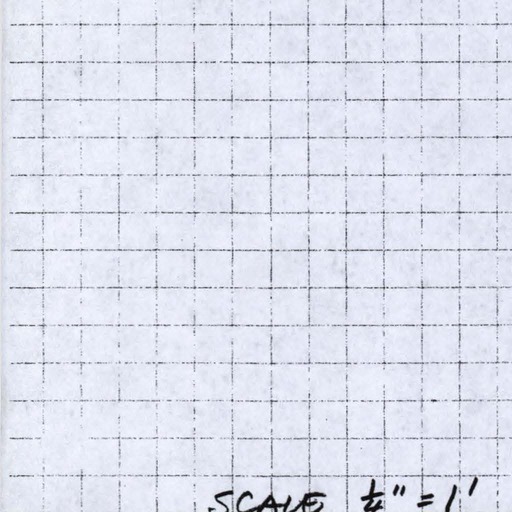 SCALE ¼" = 1'